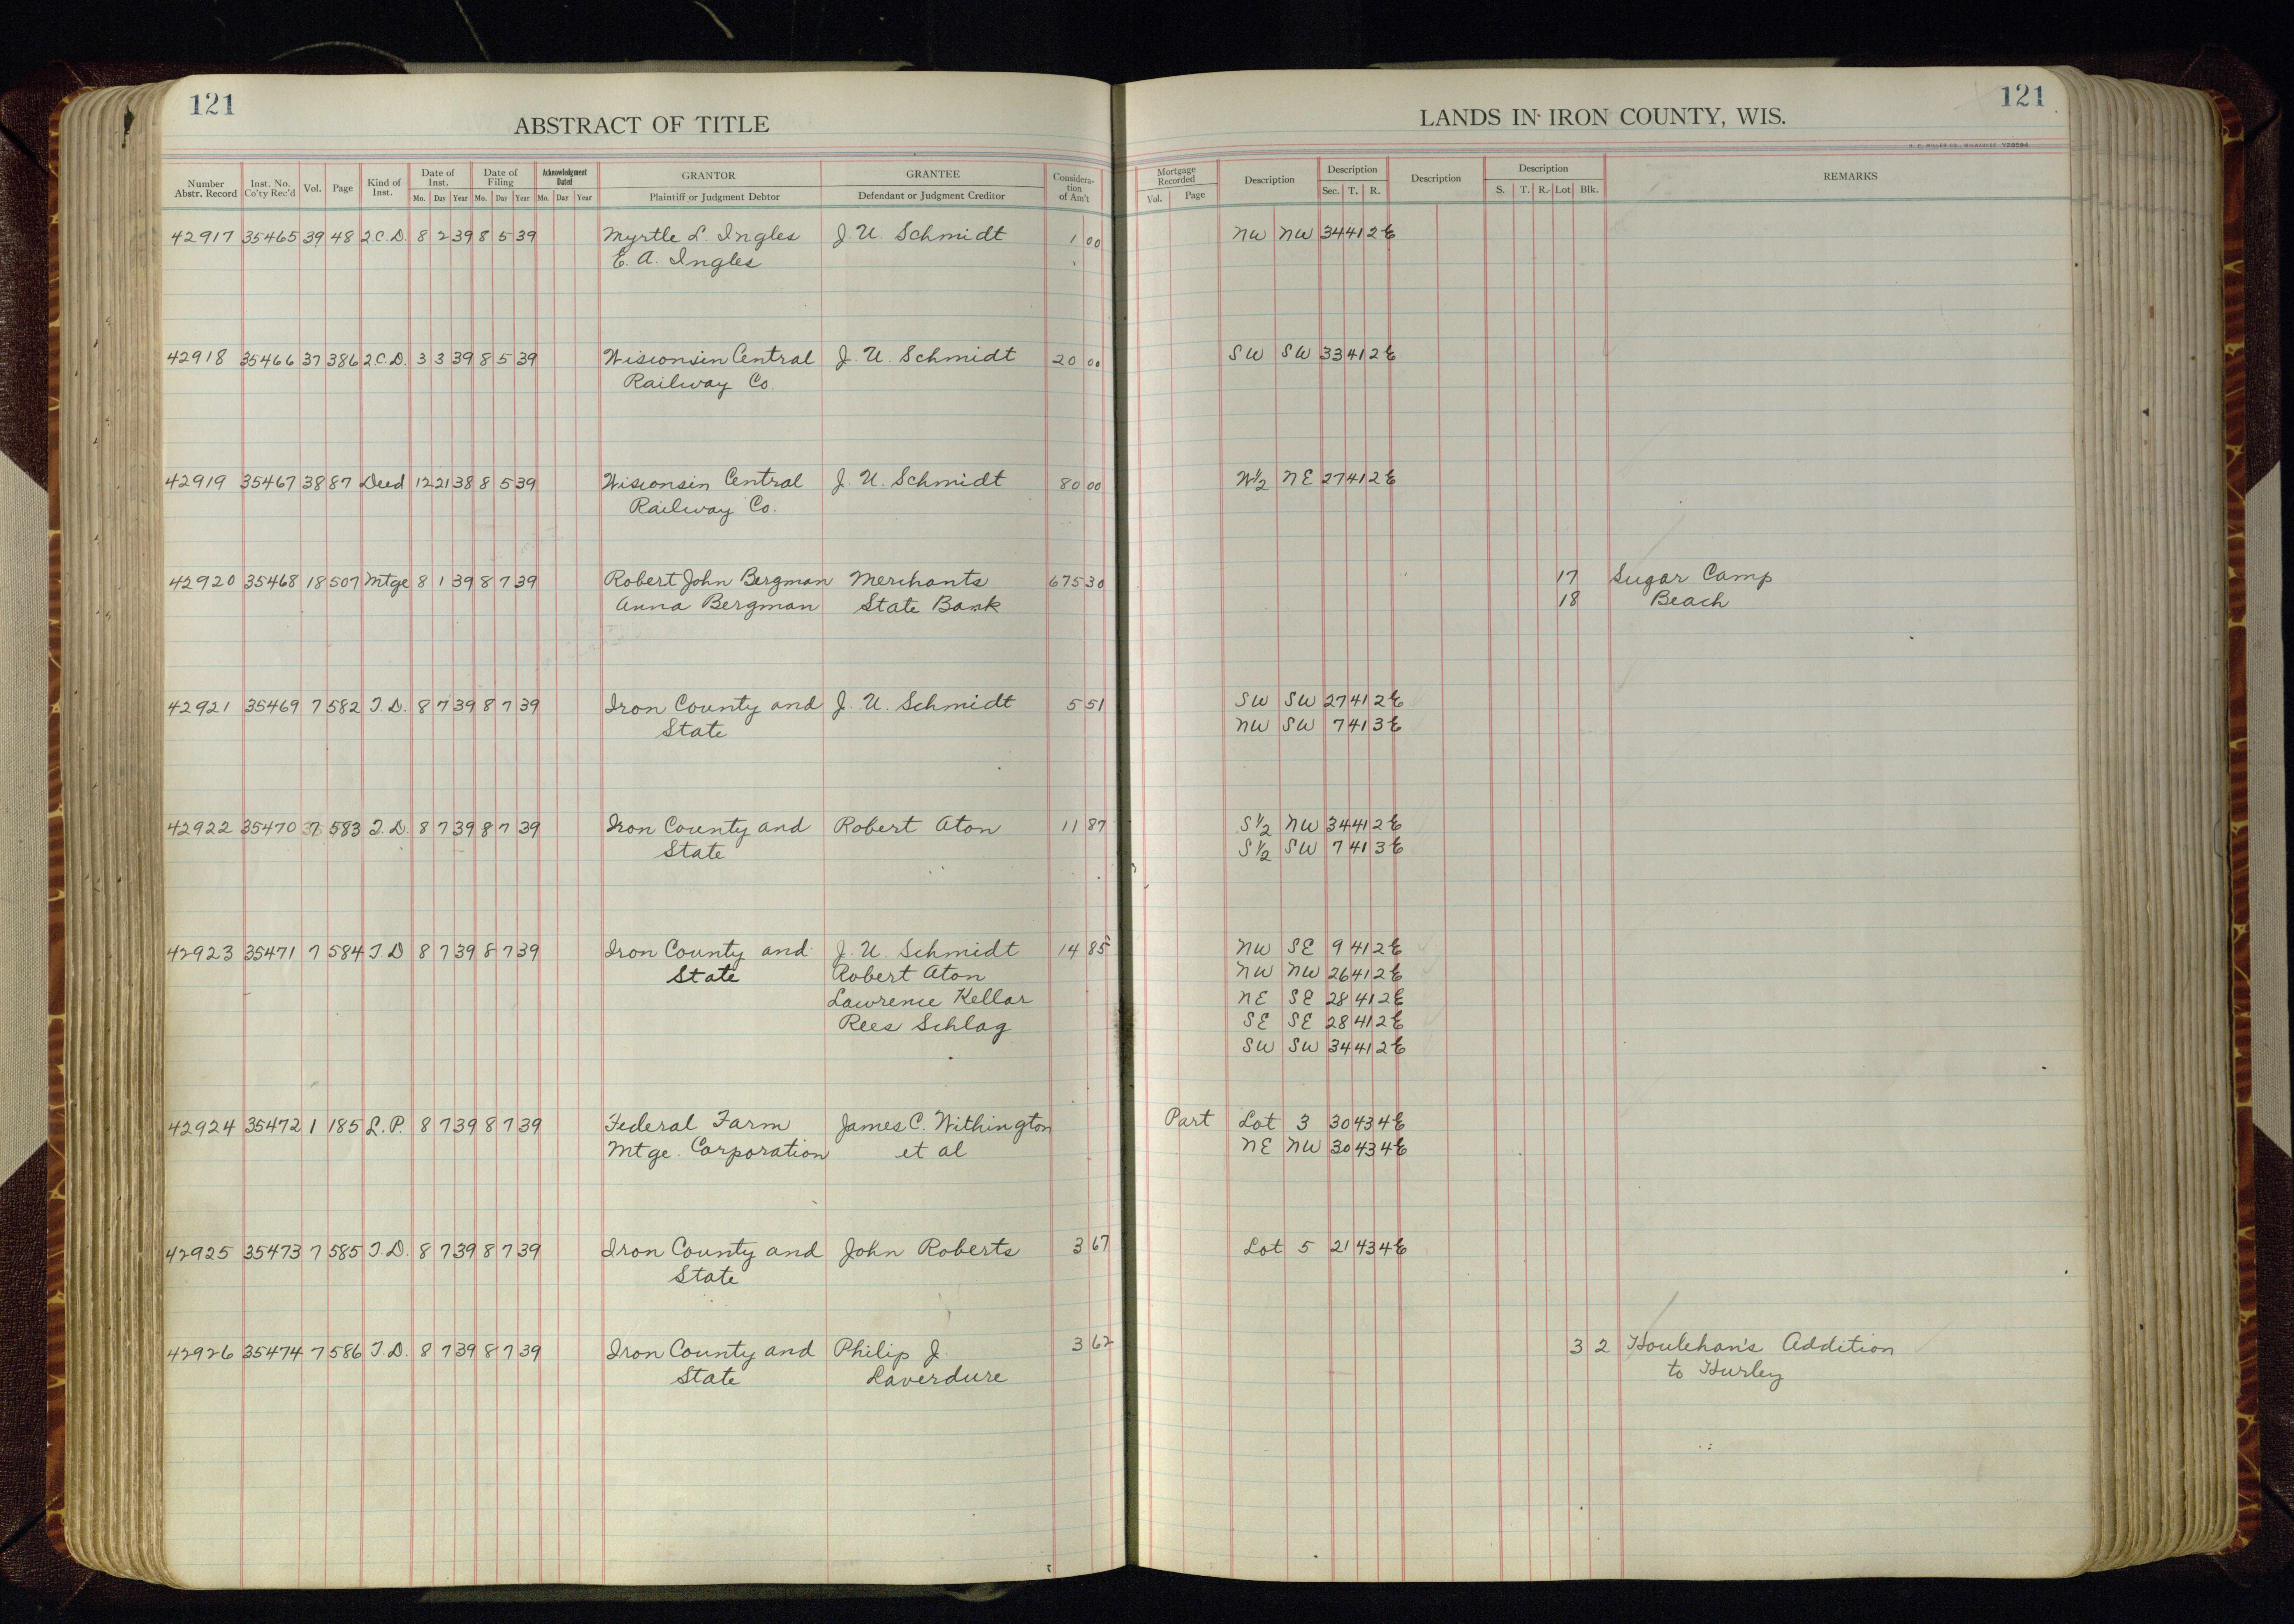 121
ABSTRACT OF TITLE
Number Abstr. Record | Inst. No. Co'ty Rec'd | Vol. | Page | Kind of Inst. | Date of Inst. Mo. Day Year | Date of Filing Mo. Day Year | Acknowledgment Dated Mo. Day Year | GRANTOR Plaintiff or Judgment Debtor | GRANTEE Defendant or Judgment Creditor | Considera-tion of Am't
42917 35465 39 48 Q.C.D. 8 2 39 8 5 39 Myrtle L. Ingles J. U. Schmidt 1 00
E. A. Ingles
42918 35466 37 386 Q.C.D. 3 3 39 8 5 39 Wisconsin Central J. U. Schmidt 20 00
Railway Co.
42919 35467 38 87 Deed 12 21 38 8 5 39 Wisconsin Central J. U. Schmidt 80 00
Railway Co.
42920 35468 18 507 Mtge 8 1 39 8 7 39 Robert John Bergman Merchants 675 30
Anna Bergman State Bank
42921 35469 7 582 T.D. 8 7 39 8 7 39 Iron County and J. U. Schmidt 5 51
State
42922 35470 7 583 T.D. 8 7 39 8 7 39 Iron County and Robert Aton 11 87
State
42923 35471 7 584 T.D 8 7 39 8 7 39 Iron County and J. U. Schmidt 14 85
State Robert Aton
Lawrence Kellar
Rees Schlag
42924 35472 1 185 L.P. 8 7 39 8 7 39 Federal Farm James C. Withington
Mtge. Corporation et al
42925 35473 7 585 T.D. 8 7 39 8 7 39 Iron County and John Roberts 3 67
State
42926 35474 7 586 T.D. 8 7 39 8 7 39 Iron County and Philip J. 3 62
State Laverdure
121
LANDS IN IRON COUNTY, WIS.
H. C. MILLER CO., MILWAUKEE V28594
Mortgage Recorded Vol. Page | Description | Description Sec. T. R. | Description | Description S. T. R. Lot Blk. | REMARKS
NW NW 34 41 2E
SW SW 33 41 2E
W½ NE 27 41 2E
17 Sugar Camp
18 Beach
SW SW 27 41 2E
NW SW 7 41 3E
S½ NW 34 41 2E
S½ SW 7 41 3E
NW SE 9 41 2E
NW NW 26 41 2E
NE SE 28 41 2E
SE SE 28 41 2E
SW SW 34 41 2E
Part Lot 3 30 43 4E
NE NW 30 43 4E
Lot 5 21 43 4E
3 2 Houlehan's Addition
to Hurley